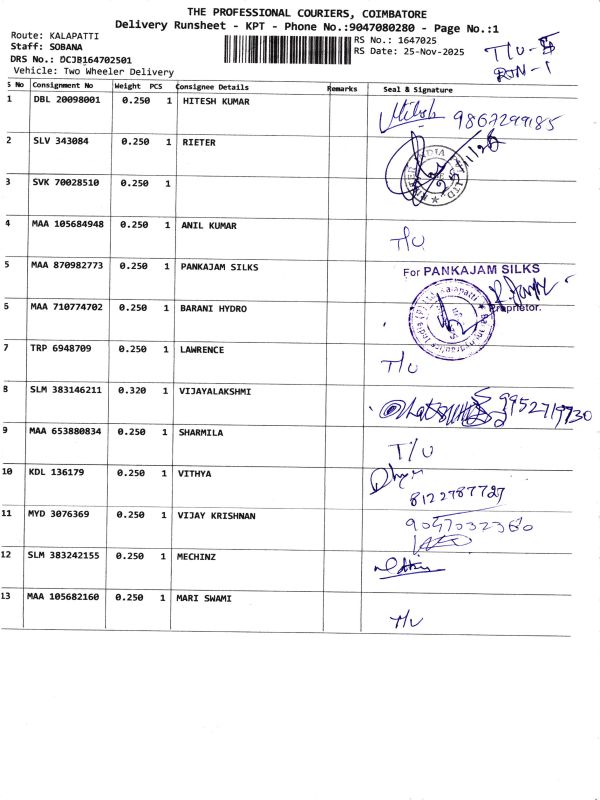 THE PROFESSIONAL COURIERS, COIMBATORE
Delivery Runsheet - KPT - Phone No.:9047080280 - Page No.:1
Route: KALAPATTI
Staff: SOBANA
DRS No.: DCJB164702501
Vehicle: Two Wheeler Delivery
RS No.: 1647025
RS Date: 25-Nov-2025
T/U -
RTN - 1
S No Consignment No Weight PCS Consignee Details Remarks Seal & Signature
1 DBL 20098001 0.250 1 HITESH KUMAR
Hitesh 9867299185
2 SLV 343084 0.250 1 RIETER
3 SVK 70028510 0.250 1
4 MAA 105684948 0.250 1 ANIL KUMAR
T/U
5 MAA 870982773 0.250 1 PANKAJAM SILKS
For PANKAJAM SILKS
Proprietor.
6 MAA 710774702 0.250 1 BARANI HYDRO
7 TRP 6948709 0.250 1 LAWRENCE
T/U
8 SLM 383146211 0.320 1 VIJAYALAKSHMI
9952719730
9 MAA 653880834 0.250 1 SHARMILA
T/U
10 KDL 136179 0.250 1 VITHYA
8122787727
11 MYD 3076369 0.250 1 VIJAY KRISHNAN
9047032360
12 SLM 383242155 0.250 1 MECHINZ
13 MAA 105682160 0.250 1 MARI SWAMI
T/U